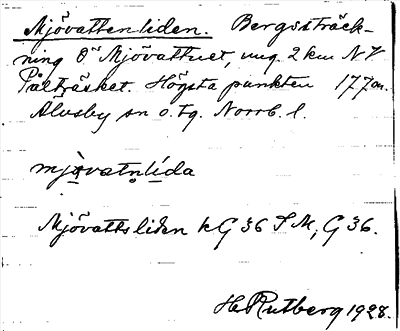 Mjövattenliden. Bergssträck-
ning Ö Mjövattnet, ung. 2 km NV
Pålträsket. Högsta punkten 177 m.
Älvsby sn o. tg. Norrb. l.
mjòvatnlída
Mjövattsliden kG 36 SM, G 36.
H. Rutberg 1928.